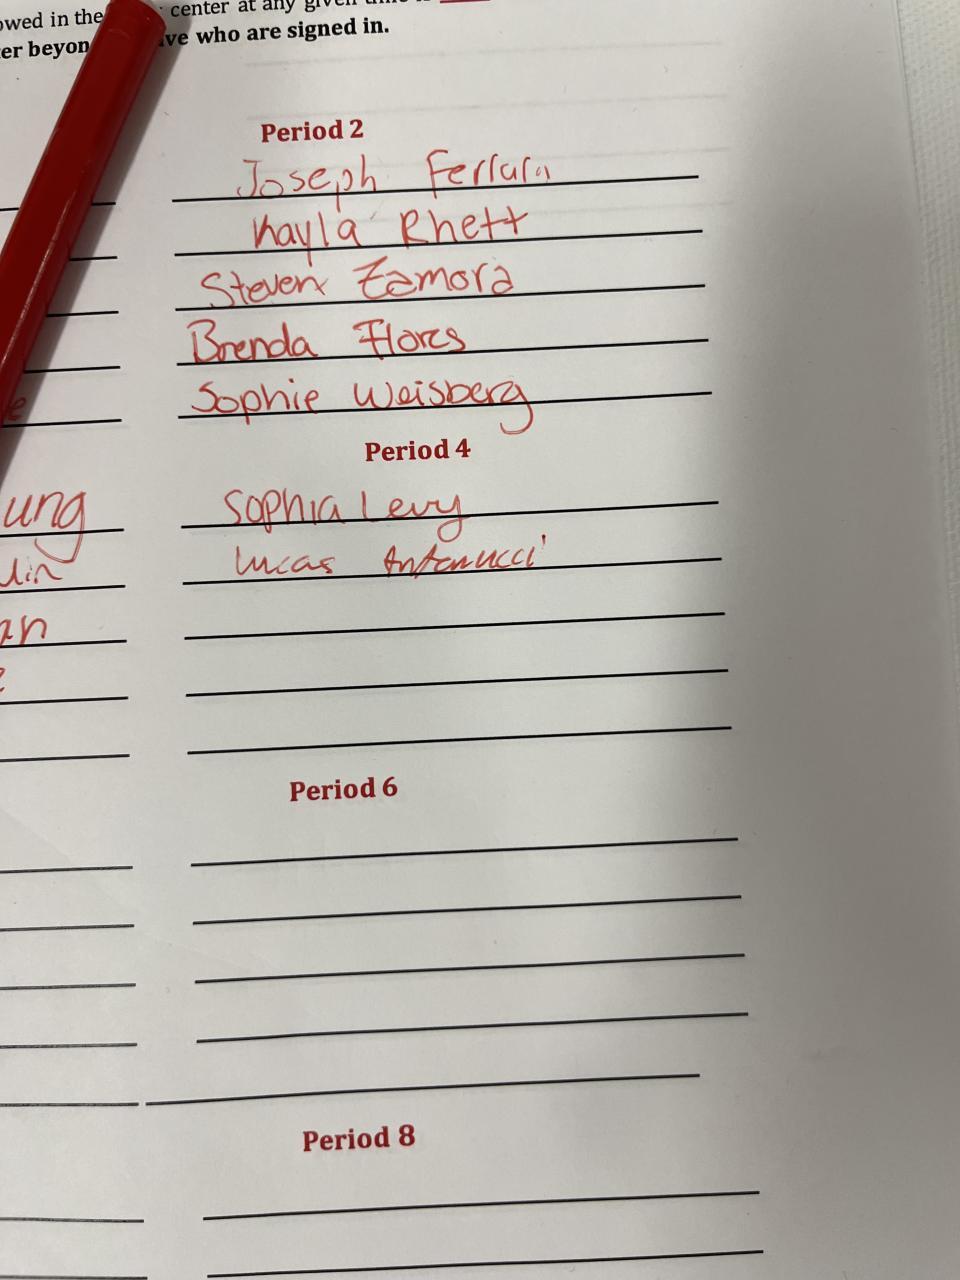 center at any given
who are signed in.
Period 2
Joseph Ferrara
Kayla Rhett
Steven Zamora
Brenda Flores
Sophie Weisberg
Period 4
ung
Sophia Levy
Lucas Antonucci
Period 6
Period 8